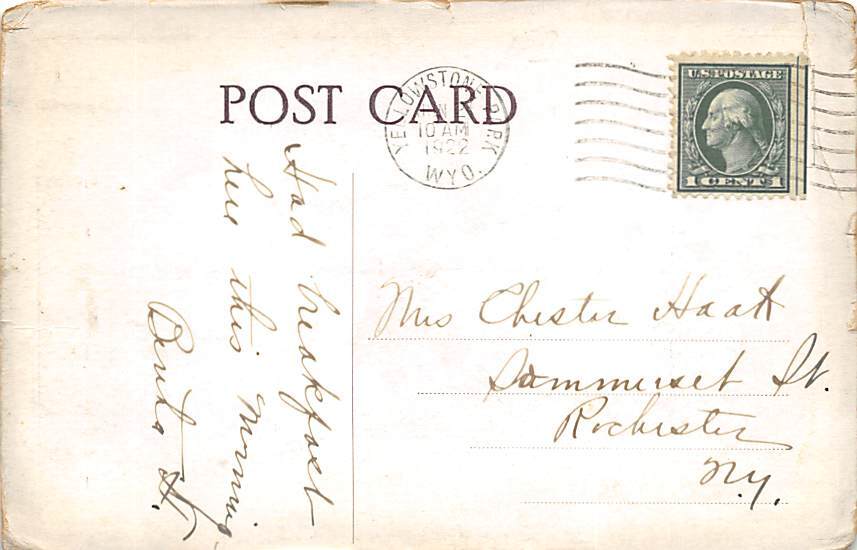 POST CARD
YELLOWSTONE PARK
10 AM
1922
WYO.
U.S. POSTAGE
1 CENT 1
Had breakfast
here this morning
H.
Mrs Chester Haatt
Summerset St.
Rochester
N.Y.